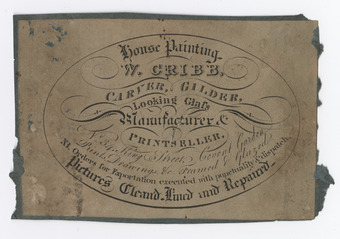 House Painting.
W. CRIBB,
CARVER, GILDER,
Looking Glass
Manufacturer, &
PRINTSELLER.
King Street Covent Garden,
Prints, Drawings &c. Framed & Glazed
N.B. Orders for Exportation executed with punctuality & dispatch.
Pictures Cleand, Lined and Repaired.